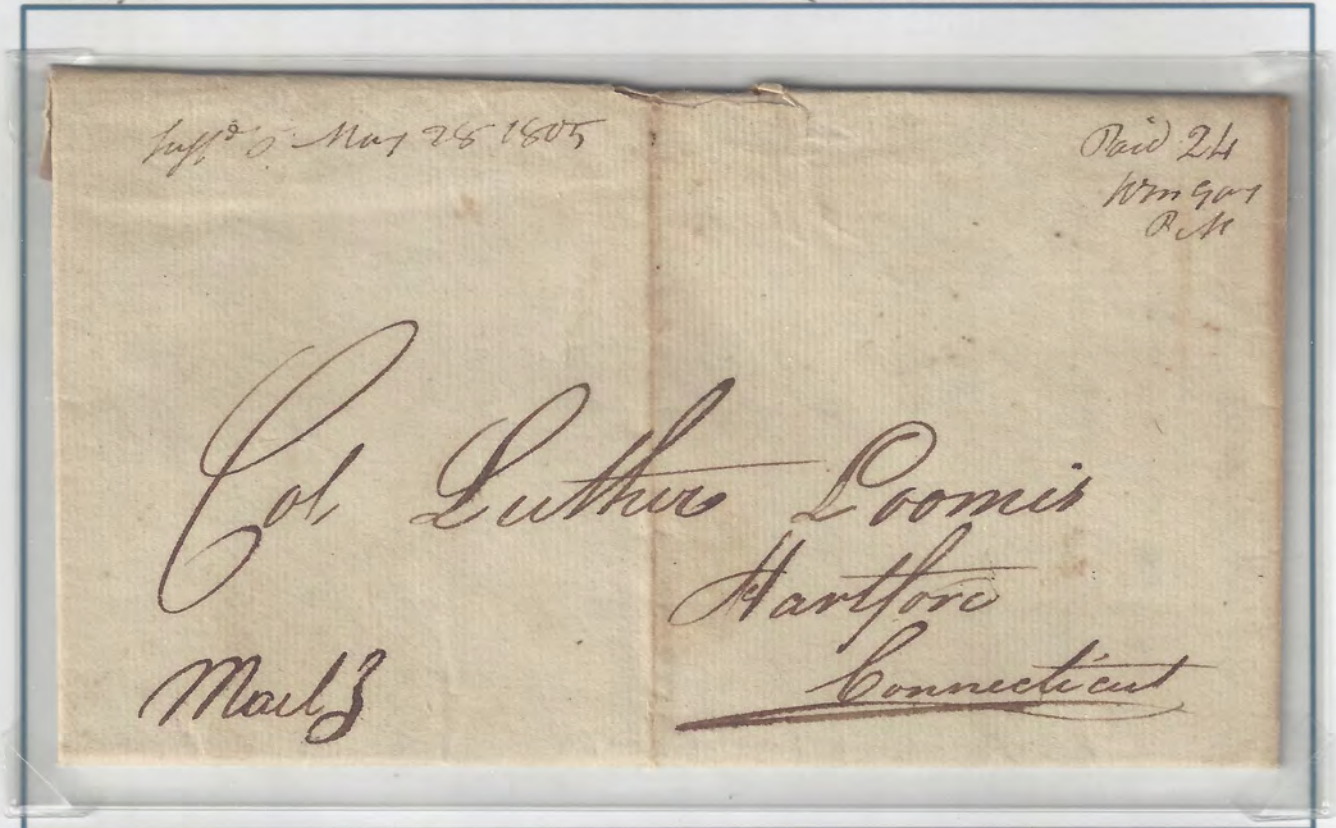 Suffd C. May 28 1805
Paid 24
Wm Gay
P.M
Col. Luther Loomis
Hartford
Connecticut
Mail